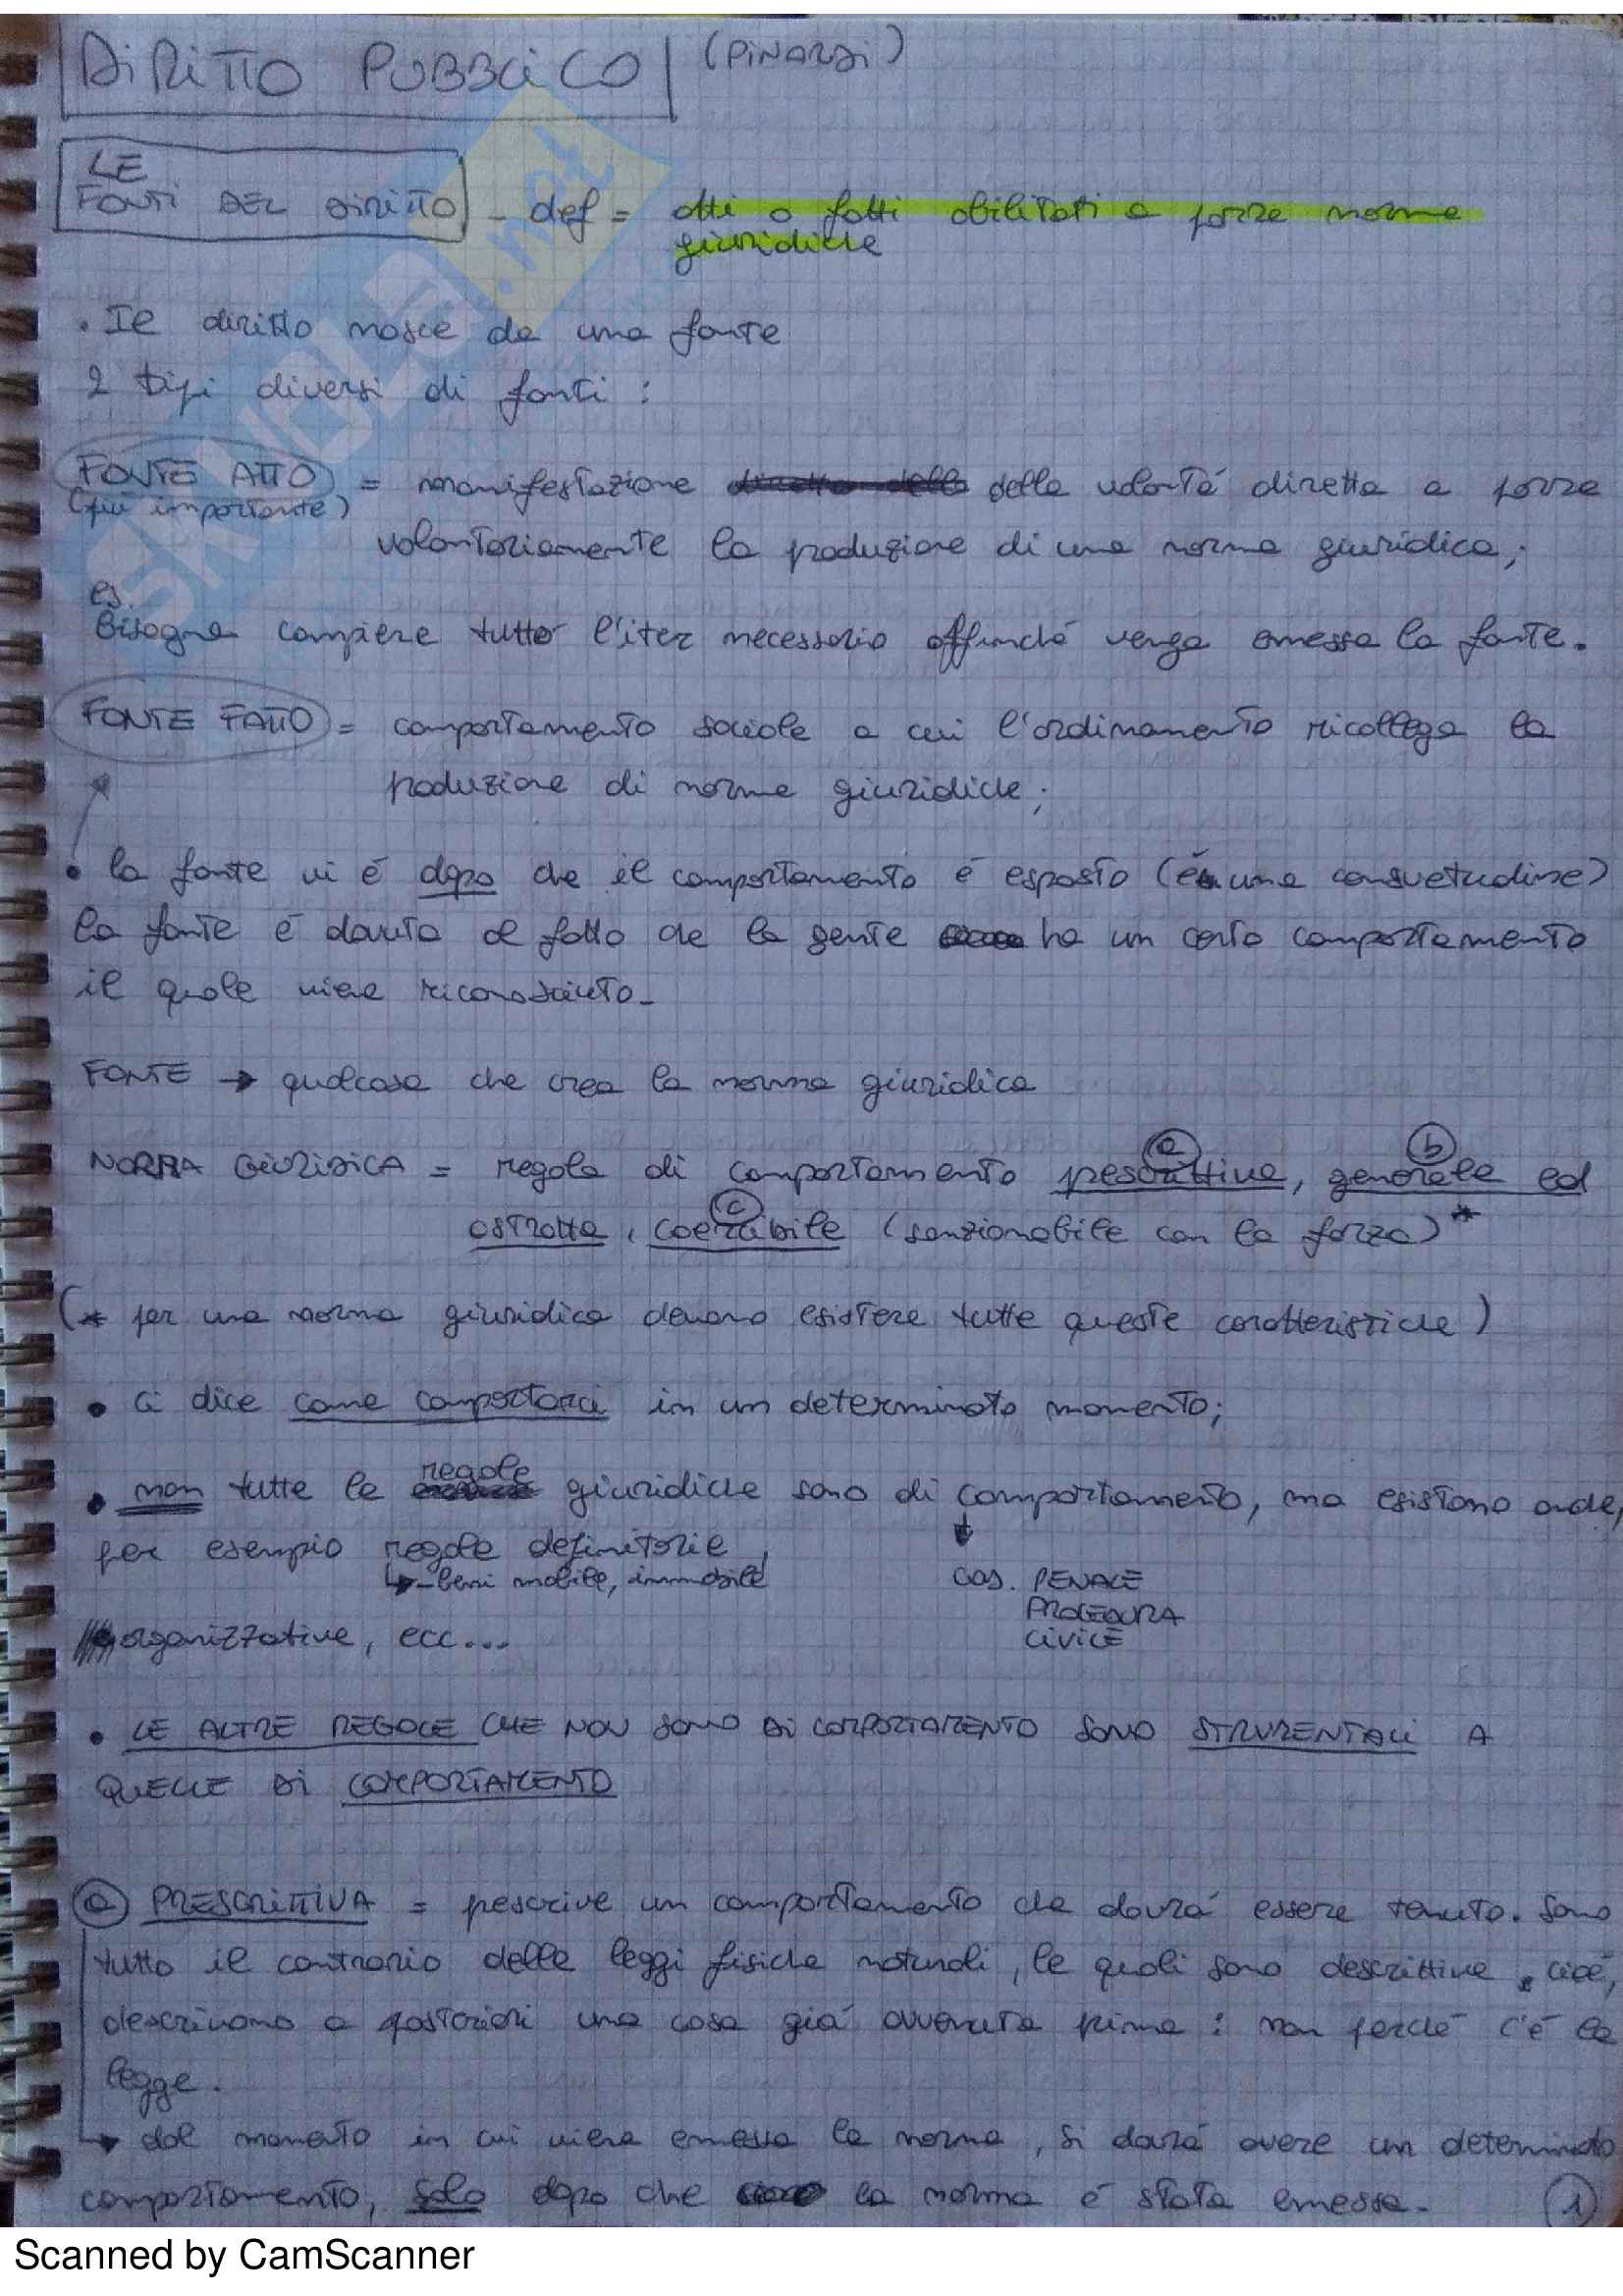 DIRITTO PUBBLICO (PINARDI)
LE
FONTI DEL DIRITTO - def = atti o fatti abilitati a porre norme
giuridiche
. Il diritto nasce da una fonte
2 tipi diversi di fonti :
FONTE ATTO = manifestazione della volontá diretta a porre
(piú importante)
volontariamente la produzione di una norma giuridica;
es.
Bisogna compiere tutto l'iter necessario affinché venga emessa la fonte.
FONTE FATTO = comportamento sociale a cui l'ordinamento ricollega la
produzione di norme giuridiche;
• la fonte vi é dopo che il comportamento é esposto (é una consuetudine)
la fonte é dovuta al fatto che la gente ha un certo comportamento
il quale viene riconosciuto_
FONTE → qualcosa che crea la norma giuridica
a b
NORMA GIURIDICA = regola di comportamento prescrittiva, generale ed
c
astratta, coercibile (sanzionabile con la forza)*
(* per una norma giuridica devono esistere tutte queste caratteristiche)
• Ci dice come comportarci in un determinato momento;
regole
• non tutte le giuridiche sono di comportamento, ma esistono anche,
per esempio regole definitorie,
↳ beni mobile, immobile
cod. PENALE
PROCEDURA
CIVILE
organizzative, ecc...
• LE ALTRE REGOLE CHE NON SONO DI COMPORTAMENTO SONO STRUMENTALI A
QUELLE DI COMPORTAMENTO
a PRESCRITTIVA = prescrive un comportamento che dovrá essere tenuto. Sono
tutto il contrario delle leggi fisiche naturali, le quali sono descrittive, cioé,
descrivono a posteriori una cosa giá avvenuta prima : non perché c'é la
legge.
→ dal momento in cui viene emessa la norma, si dovrá avere un determinato
comportamento, solo dopo che la norma é stata emessa.
1
SKUOLA.net
Scanned by CamScanner